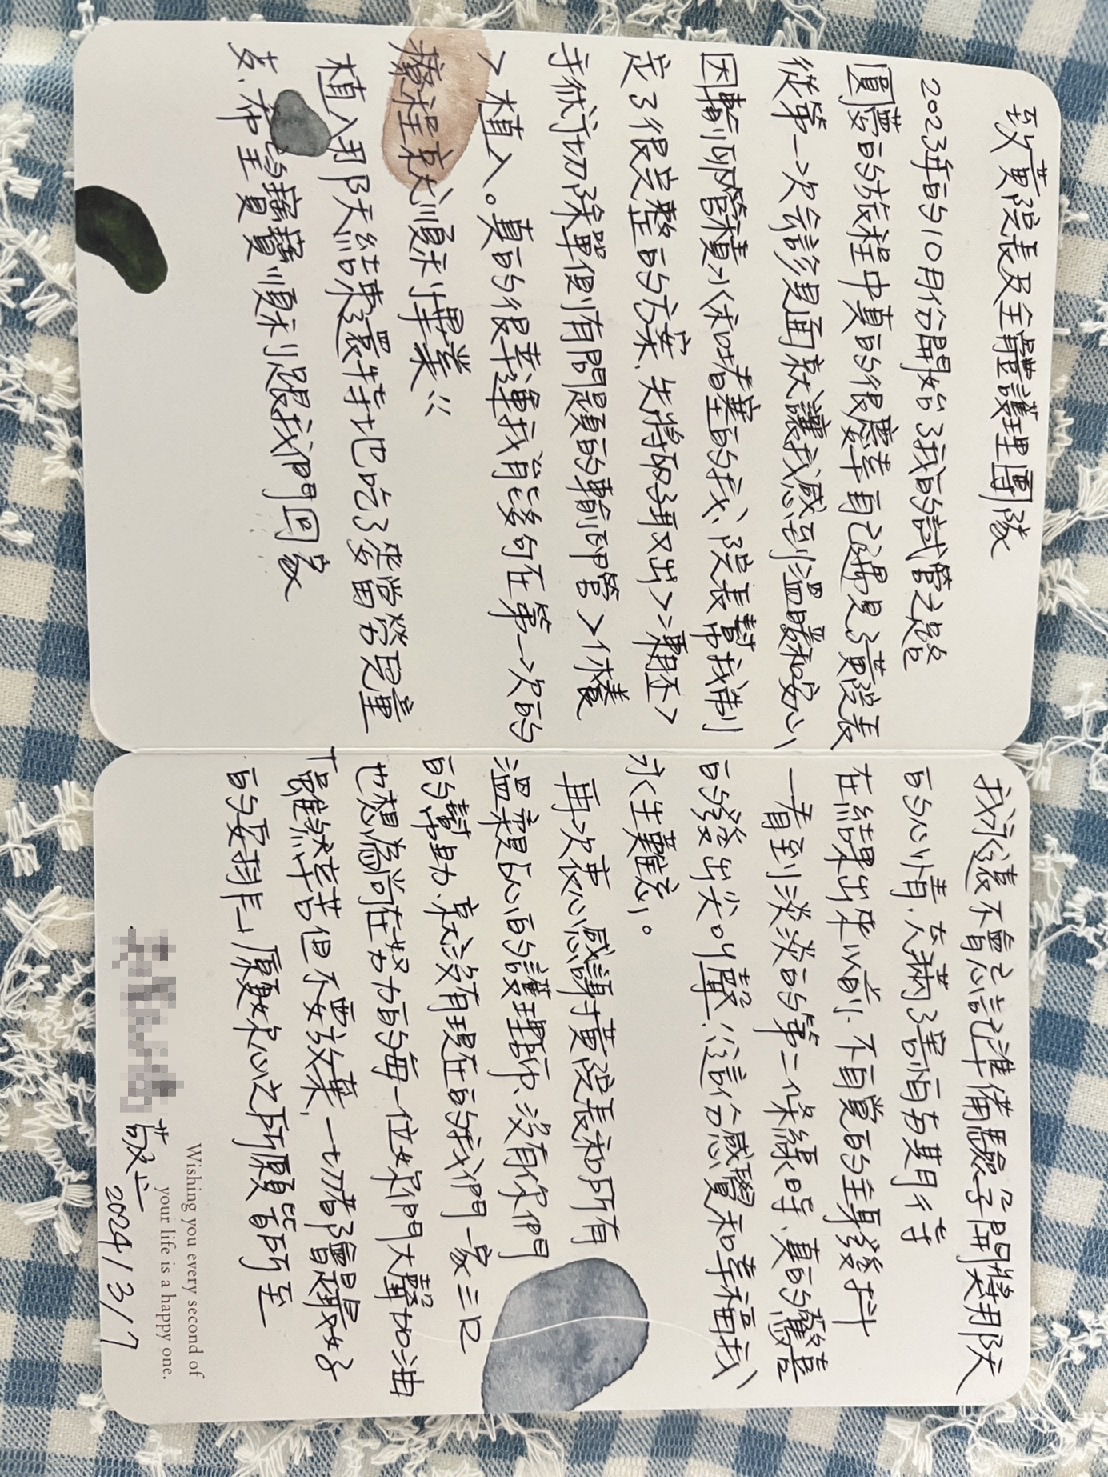 致黃院長及全體護理團隊
2023年的10月份開始了我的試管之路
圓夢的旅程中真的很慶幸自己遇見了黃院長
從第一次会診見面就讓我感到溫暖和安心、
因輸卵管積水和堵塞的我、院長幫我制
定了很完整的方案、先將卵子取出>凍胚>
手術切除單側有問題的輸卵管>休養
>植入。真的很幸運我能夠在第一次的
療程就順利畢業!!
植入那天結束還特地吃了麥當勞兒童
麦、希望寶寶順利跟我們回家
我永遠不會忘記準備驗孕開獎那天
的心情、充滿了害怕与期待
在結果出來以前、不自覚的全身發抖
一看到淡淡的第二條線時、真的驚喜
的發出尖叫聲!這份感覺和幸福我
永生難忘。
再次衷心感謝黃院長和所有
溫柔貼心的護理師、沒有你們
的幫助、就沒有現在的我們一家三口
也想為尚在努力的每一位妳們大聲加油
「雖然辛苦但不要放棄、一切都會是最好
的安排」願妳心之所願皆所至
Wishing you every second of
your life is a happy one.
敬上
2024/3/7